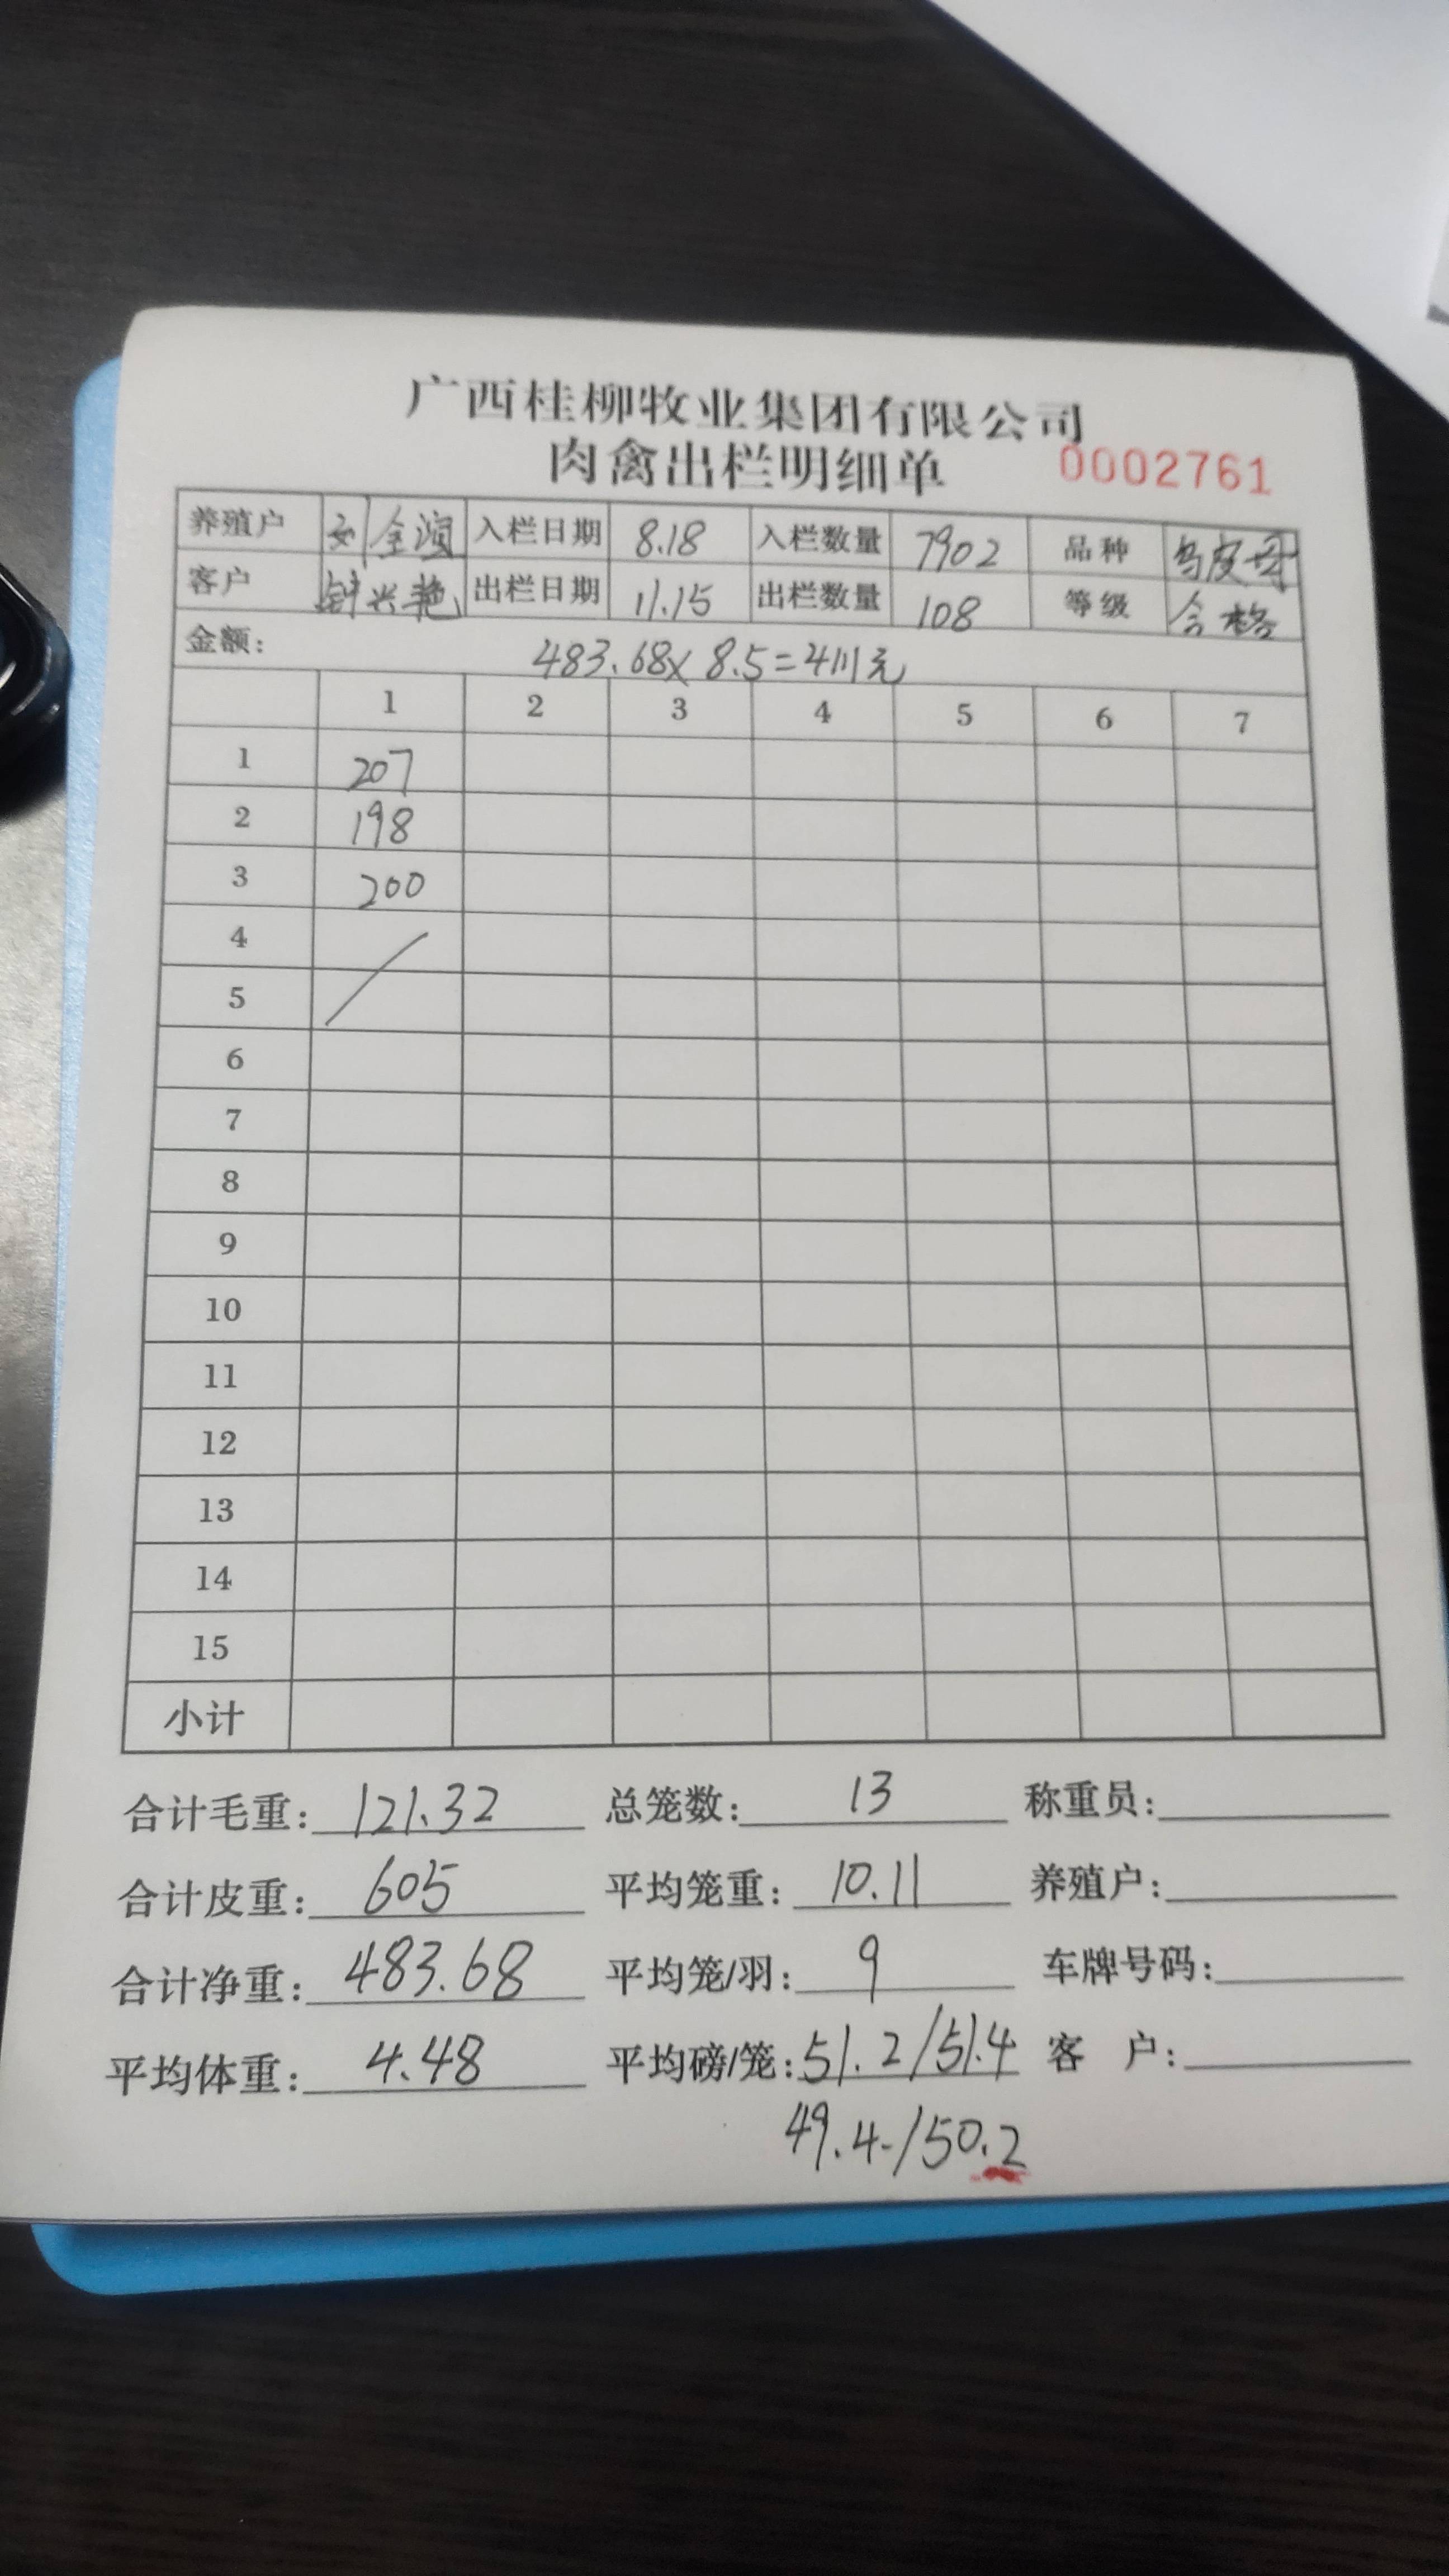 广西桂柳牧业集团有限公司
肉禽出栏明细单 0002761
养殖户 刘金演 入栏日期 8.18 入栏数量 7902 品种 乌皮母
客户 钟兴艳 出栏日期 11.15 出栏数量 108 等级 合格
金额: 483.68x8.5=4111元
1 2 3 4 5 6 7
1 207
2 198
3 200
4
5
6
7
8
9
10
11
12
13
14
15
小计
合计毛重: 121.32 总笼数: 13 称重员:
合计皮重: 605 平均笼重: 10.11 养殖户:
合计净重: 483.68 平均笼/羽: 9 车牌号码:
平均体重: 4.48 平均磅/笼: 51.2/51.4 客 户:
49.4/50.2